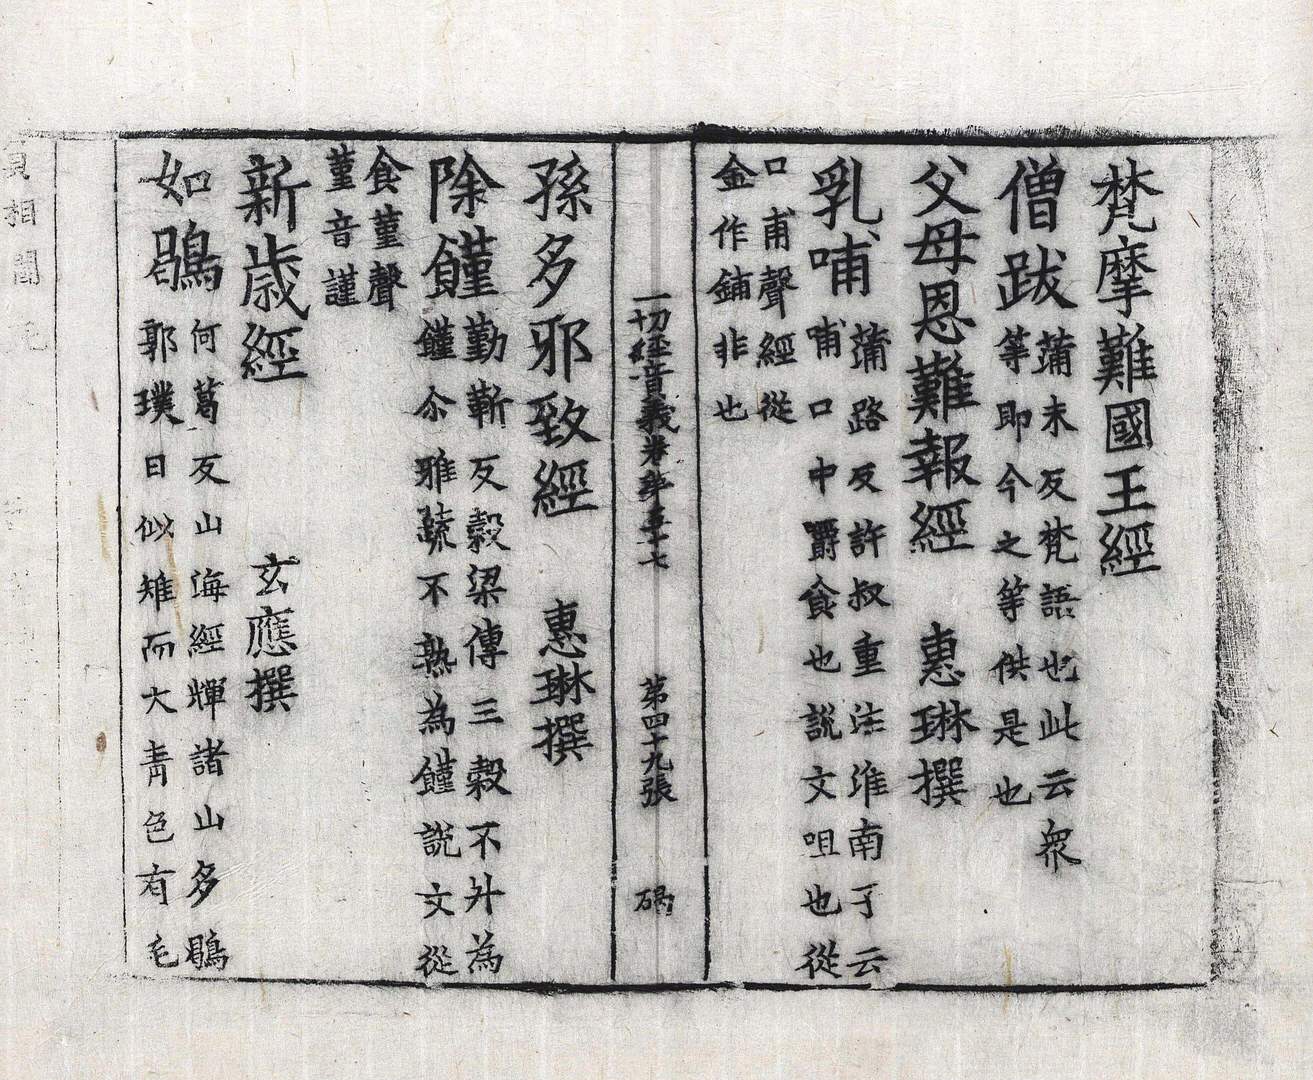 梵摩難國王經
僧跋
蒲末反梵語也此云衆
等即今之等供是也
父母恩難報經 惠琳撰
乳哺
蒲路反許叔重注淮南子云
哺口中嚼食也說文咀也從
口甫聲經從
金作鋪非也
一切經音義卷第五十七 第四十九張 碣
孫多邪致經 惠琳撰
除饉
勤靳反穀梁傳三穀不升為
饉尒雅蔬不熟為饉說文從
食堇聲
堇音謹
新歲經 玄應撰
如鶡
何葛反山海經輝諸山多鶡
郭璞曰似雉而大青色有毛